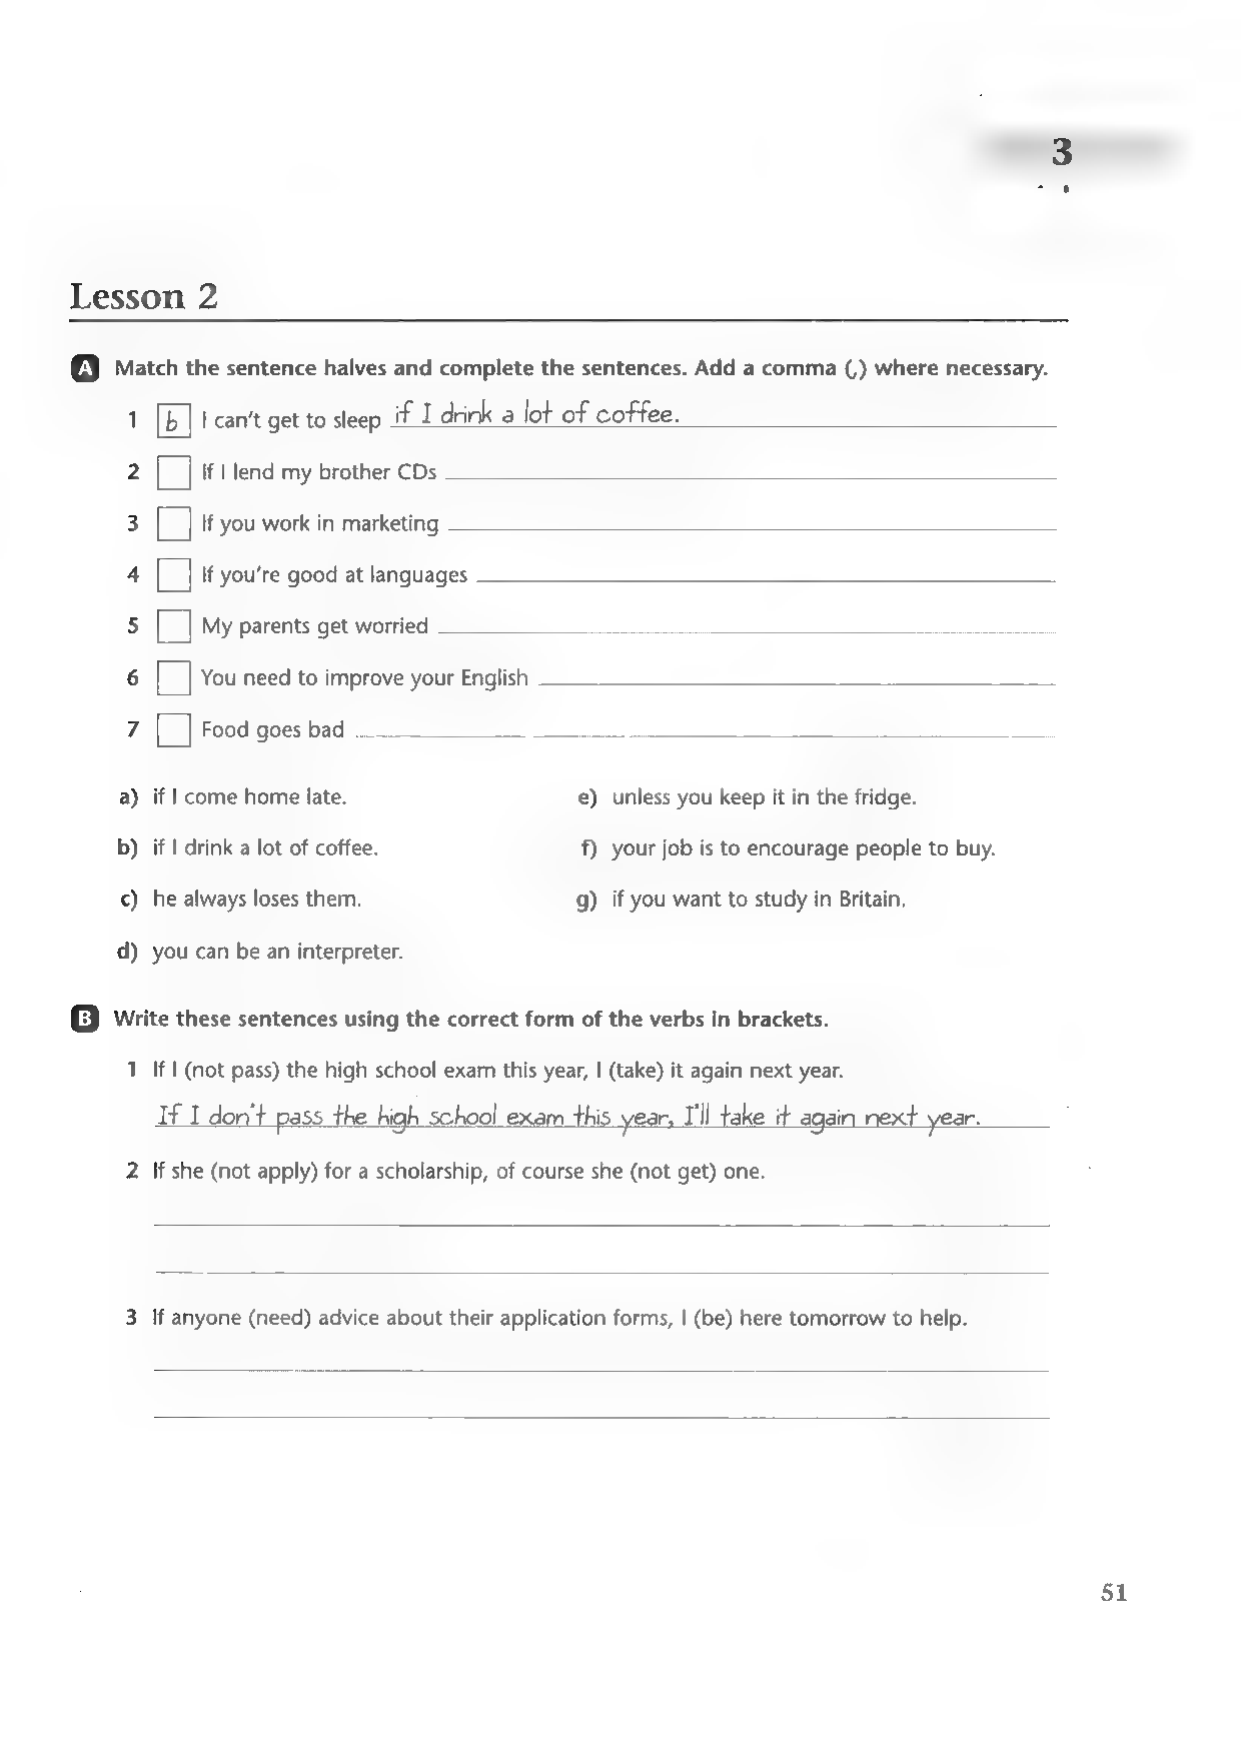 3
Lesson 2
A Match the sentence halves and complete the sentences. Add a comma (,) where necessary.
1 b I can't get to sleep if I drink a lot of coffee.
2 If I lend my brother CDs
3 If you work in marketing
4 If you're good at languages
5 My parents get worried
6 You need to improve your English
7 Food goes bad
a) if I come home late.
b) if I drink a lot of coffee.
c) he always loses them.
d) you can be an interpreter.
e) unless you keep it in the fridge.
f) your job is to encourage people to buy.
g) if you want to study in Britain.
B Write these sentences using the correct form of the verbs in brackets.
1 If I (not pass) the high school exam this year, I (take) it again next year.
If I don't pass the high school exam this year, I'll take it again next year.
2 If she (not apply) for a scholarship, of course she (not get) one.
3 If anyone (need) advice about their application forms, I (be) here tomorrow to help.
51